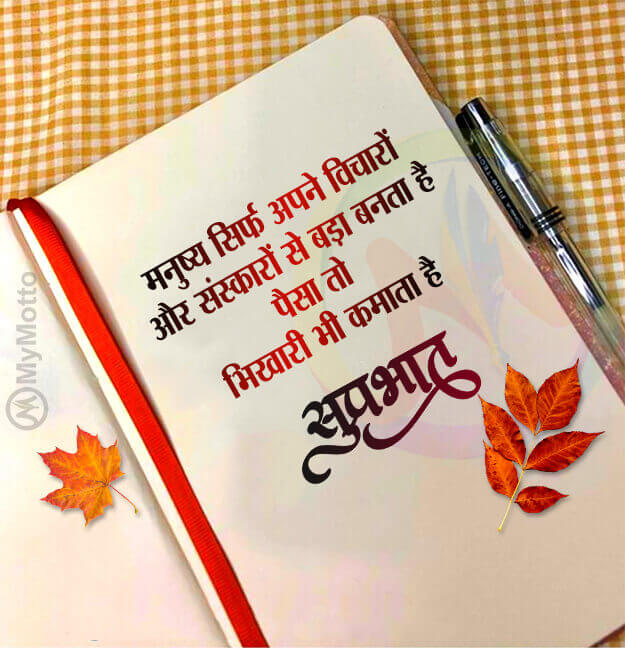 मनुष्य सिर्फ अपने विचारों
और संस्कारों से बड़ा बनता है
पैसा तो
भिखारी भी कमाता है
सुप्रभात
MyMotto